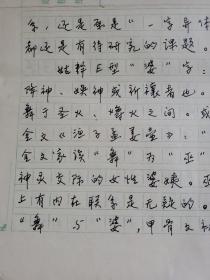 象，还是函是"一字异体
都还是有待研究的课题。
姑释E型"婆"字：
降神、娱神或祈禳者也。
舞于圣火、爝火之间。或
金文《渔子孟姜壶》：
金文家读"舞"为"巫"
神灵交际的女性婆娑。巫
上有内在联系是无疑的。
"舞"与"婆"，甲骨文初